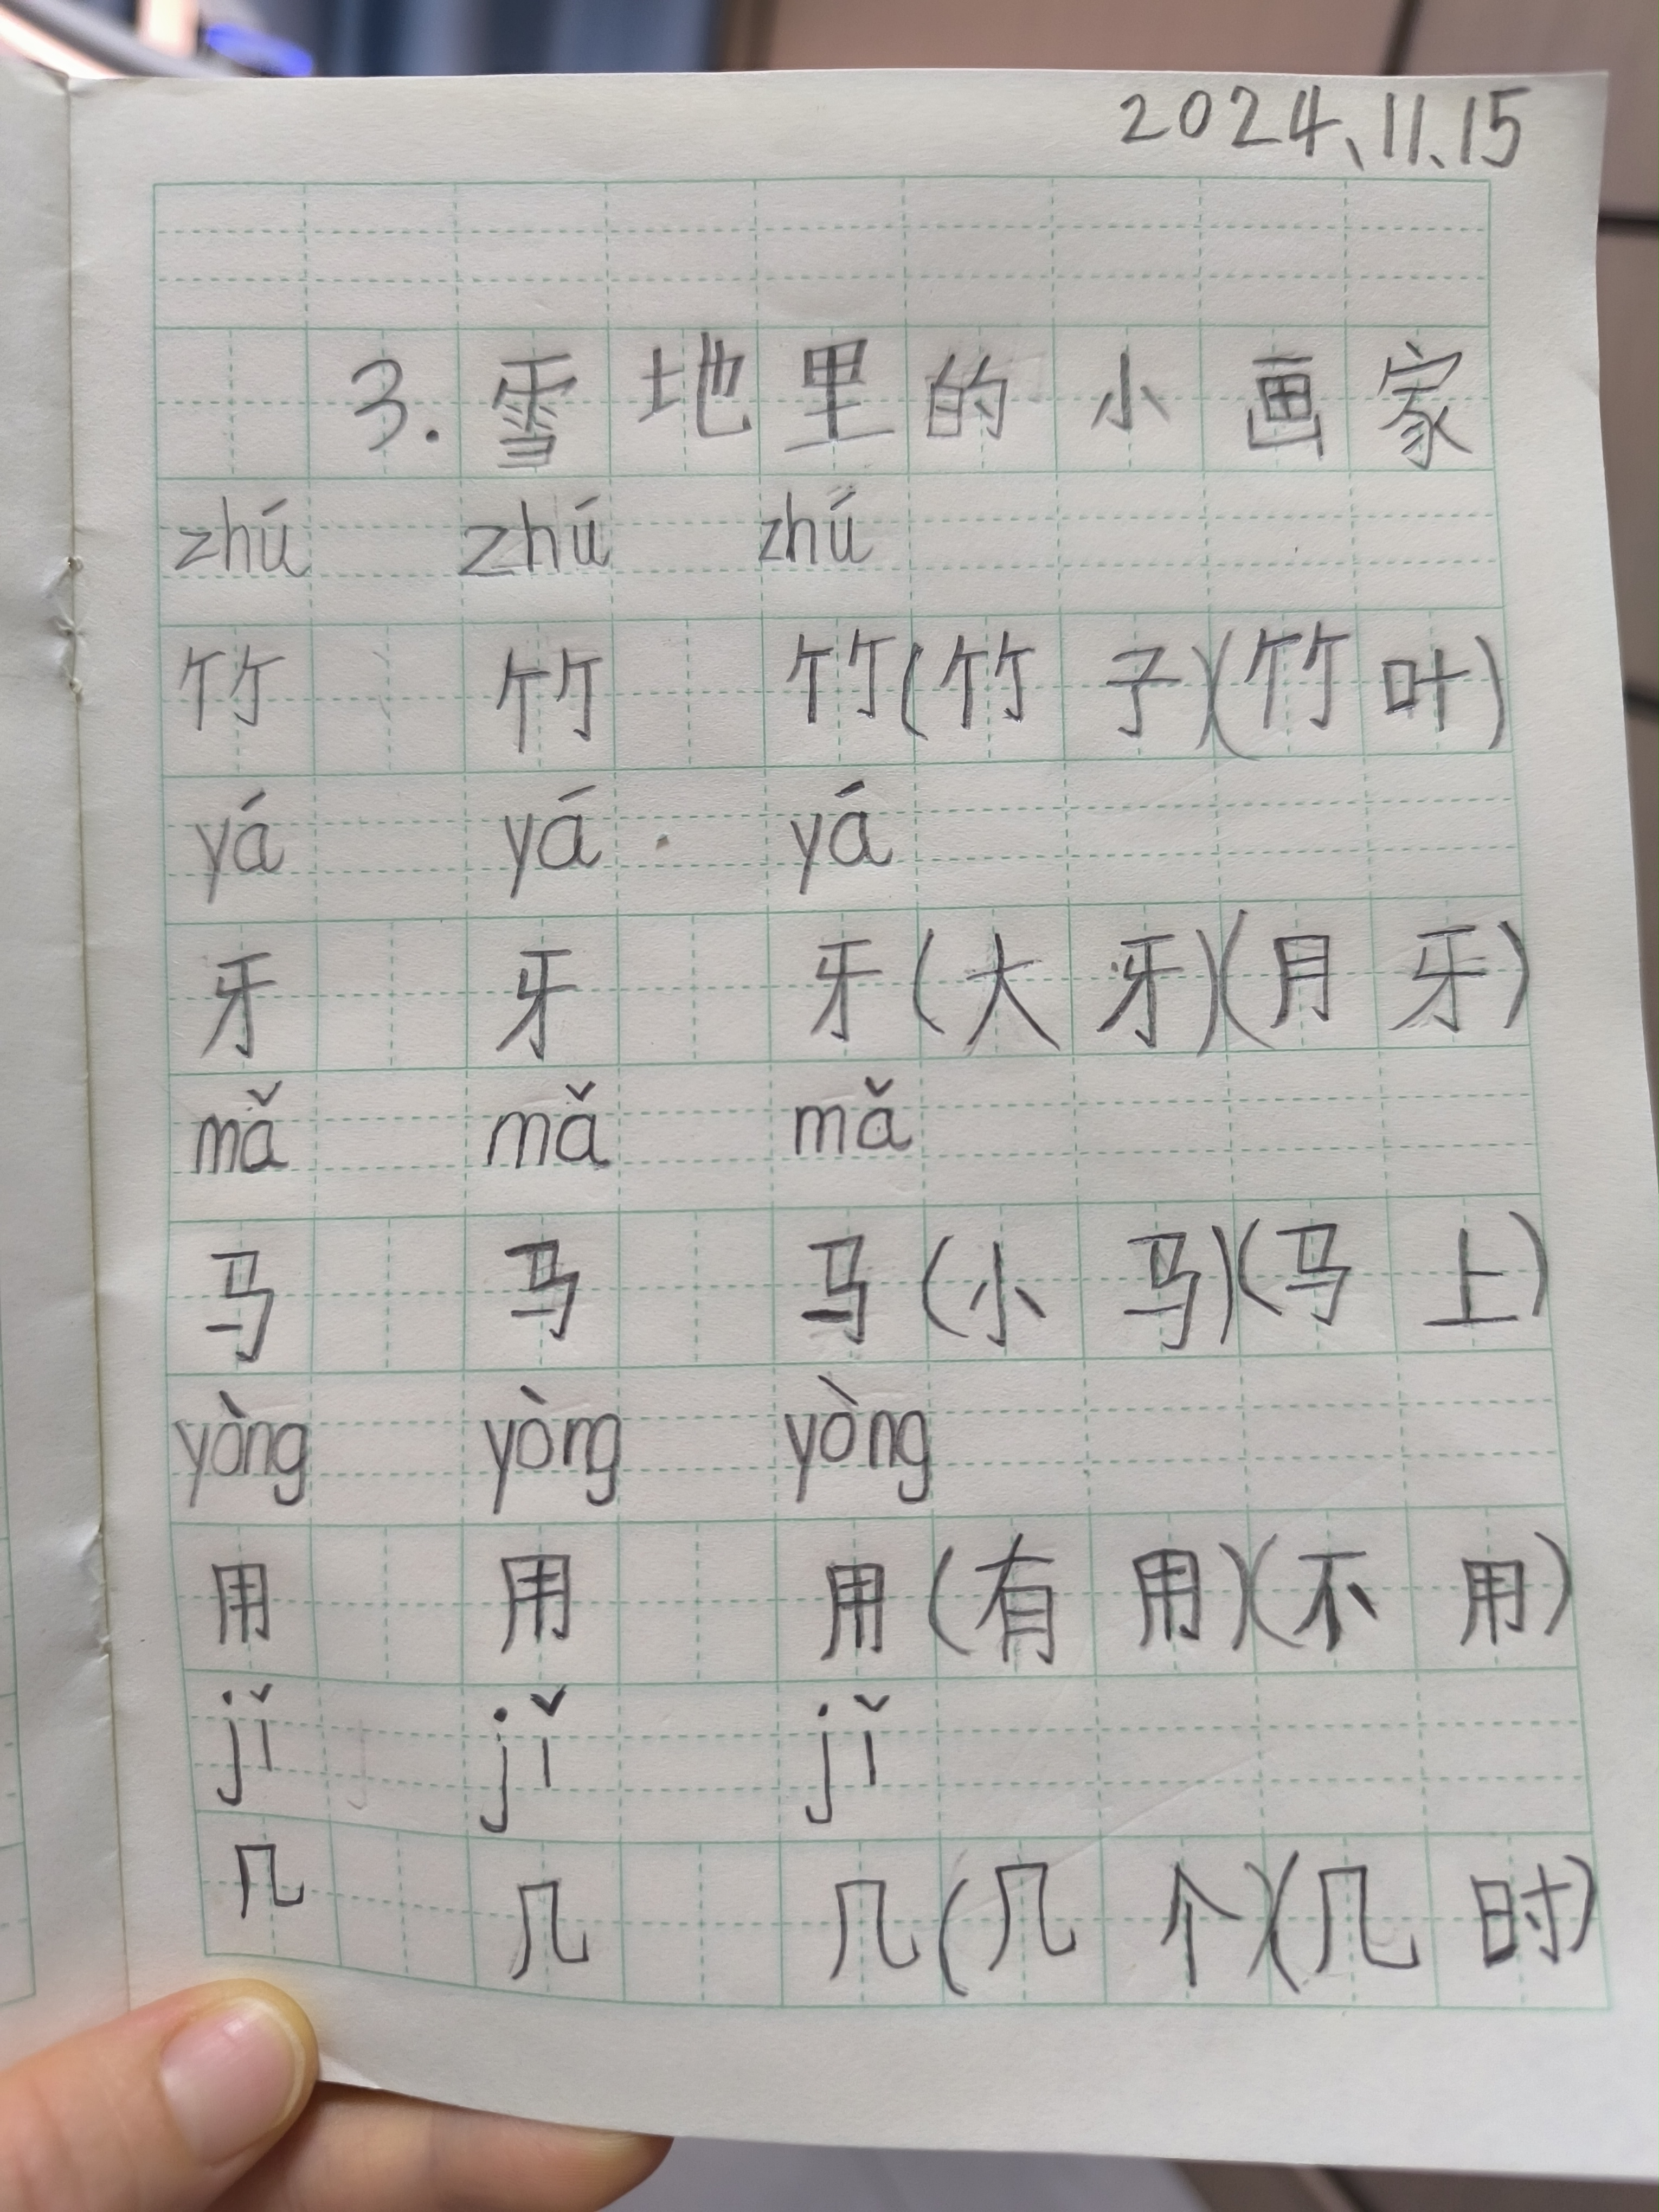 2024、11、15
3.雪地里的小画家
zhú zhú zhú
竹 竹 竹(竹子)(竹叶)
yá yá yá
牙 牙 牙(大牙)(月牙)
mǎ mǎ mǎ
马 马 马(小马)(马上)
yòng yòng yòng
用 用 用(有用)(不用)
jǐ jǐ jǐ
几 几 几(几个)(几时)